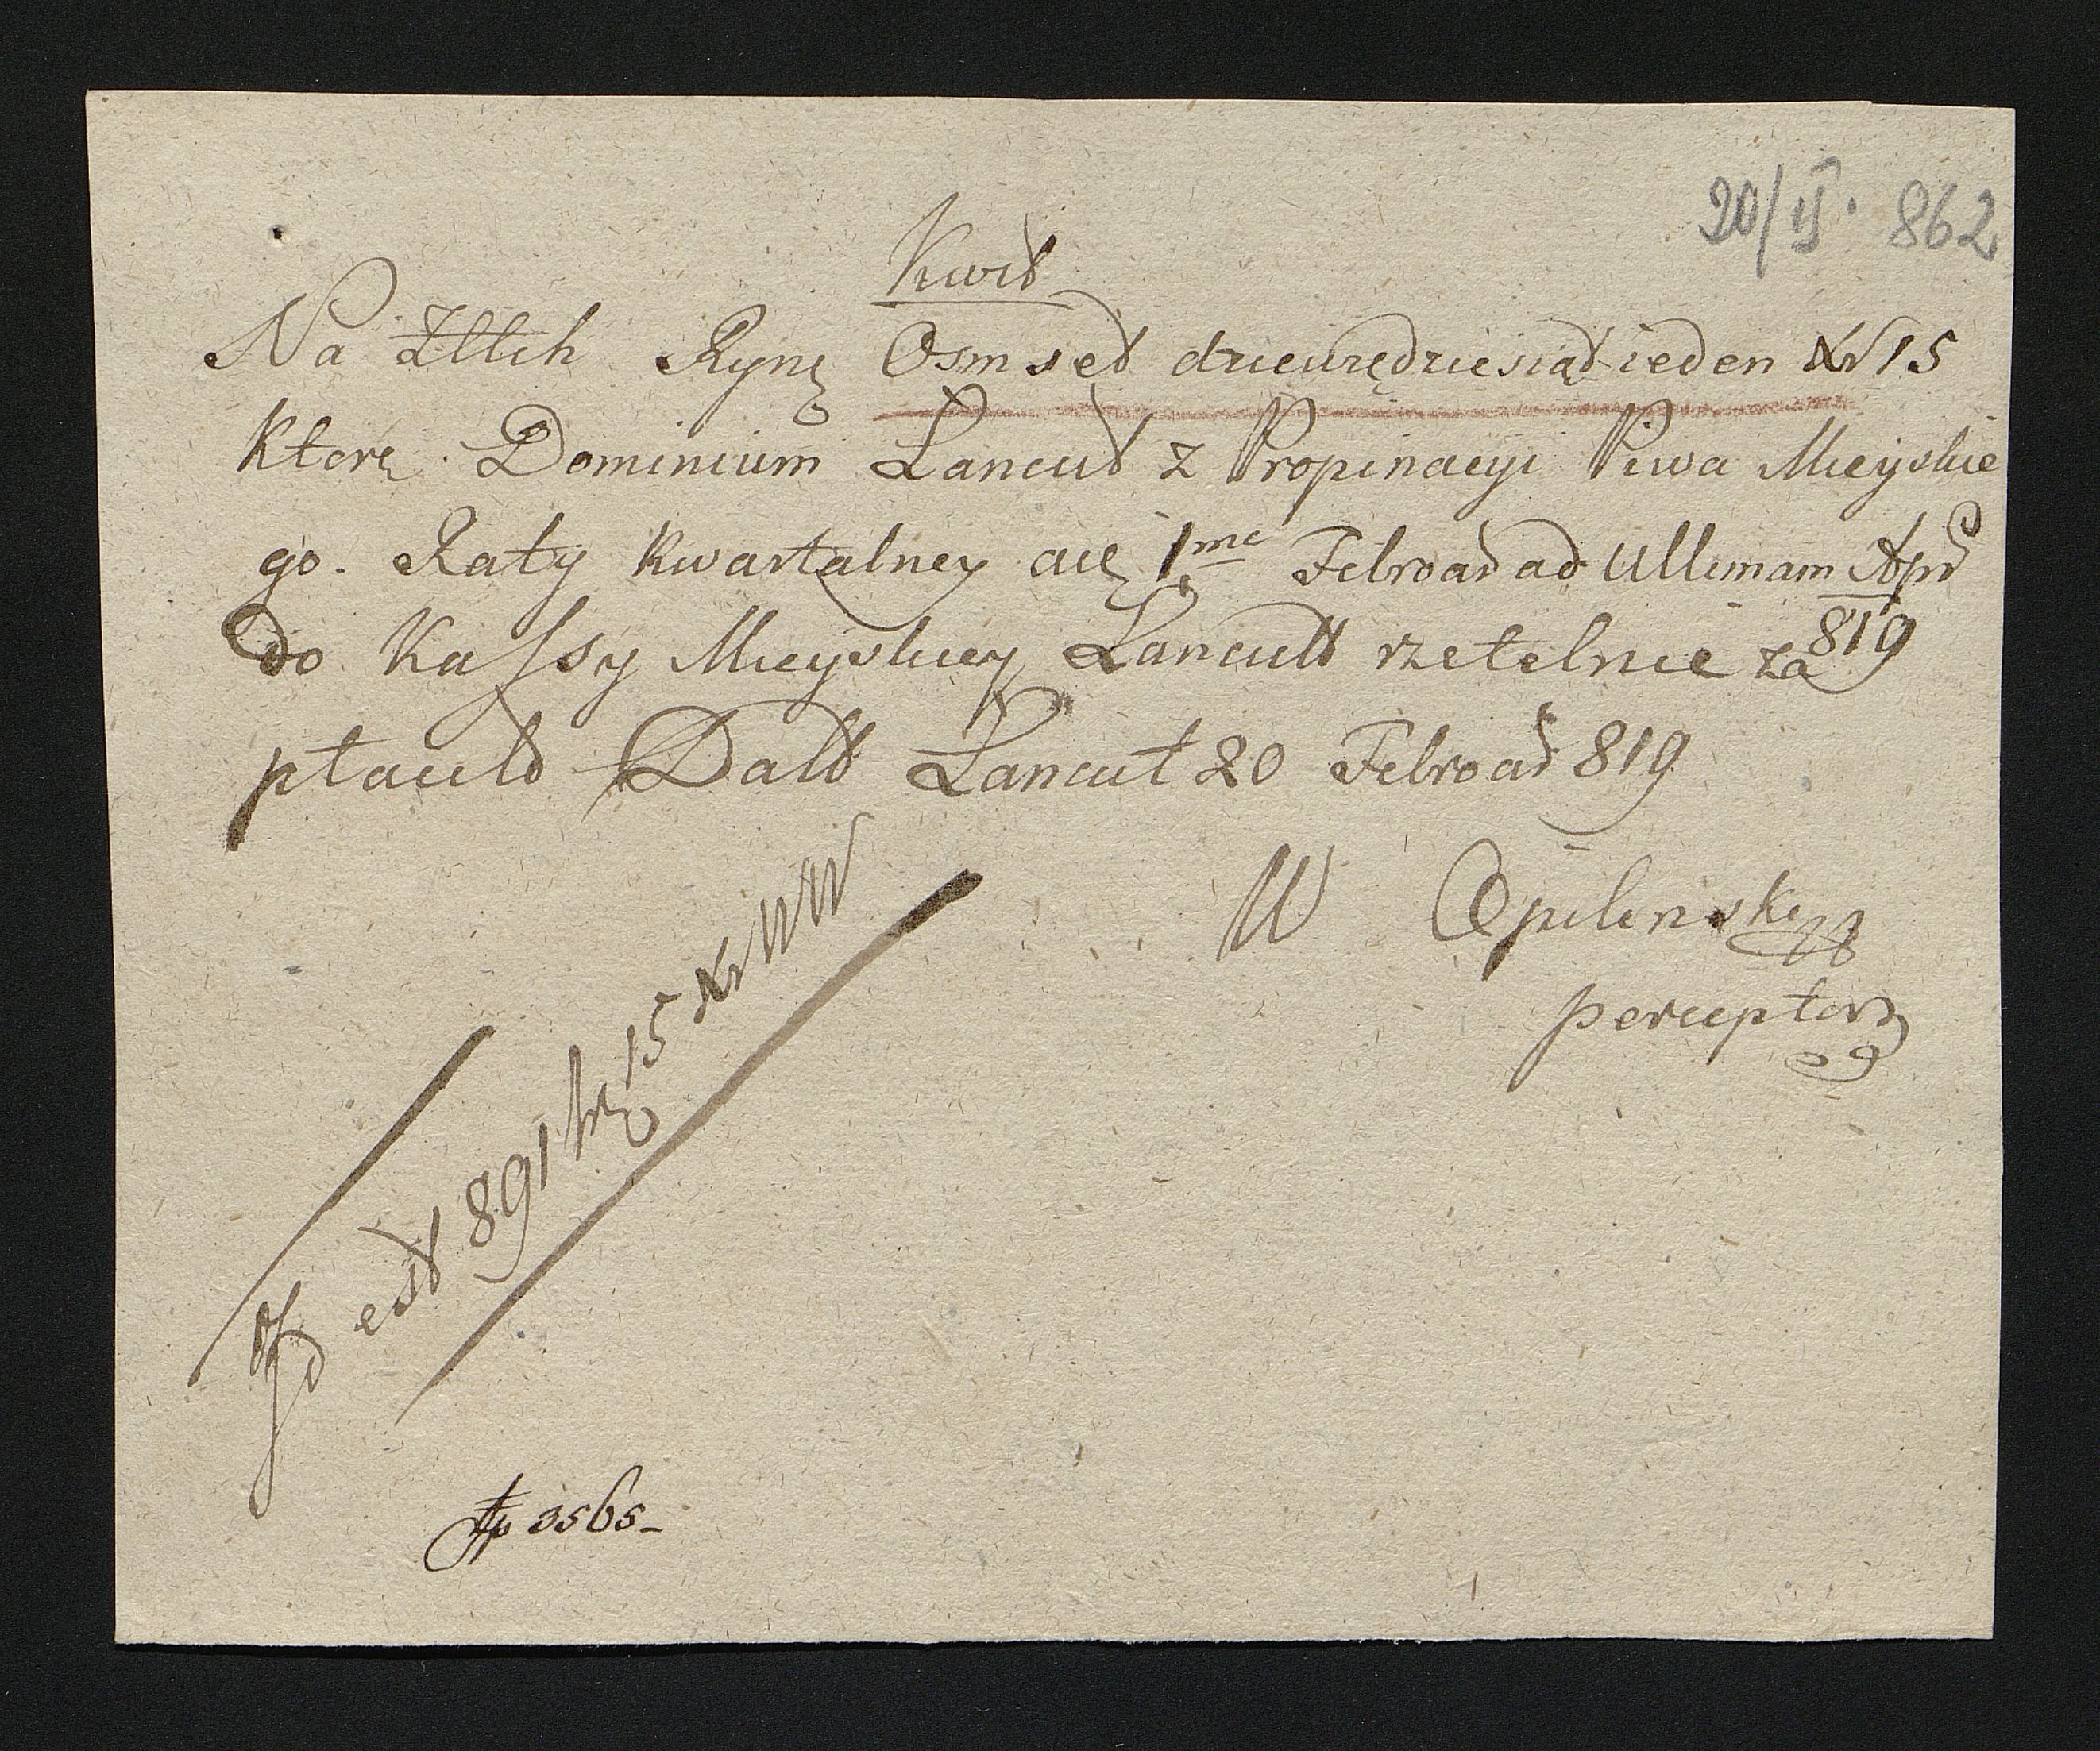 20/II. 862
Kwit
Na Złtch Rynę Osmset dziewiędziesiąt ieden Xr 15
Które Dominium Lancut z Propinacyi Piwa Mieyskie
go. Raty Kwartalney a 1me Febroar ad Ultimam Apr
819
do Kassy Mieyskiey Lancutt rzetelnie za
płacił Datt Lancut 20 Febroar 819
W Opilinski
perceptor
Id est 891 rę 15 Xr WW
3565-